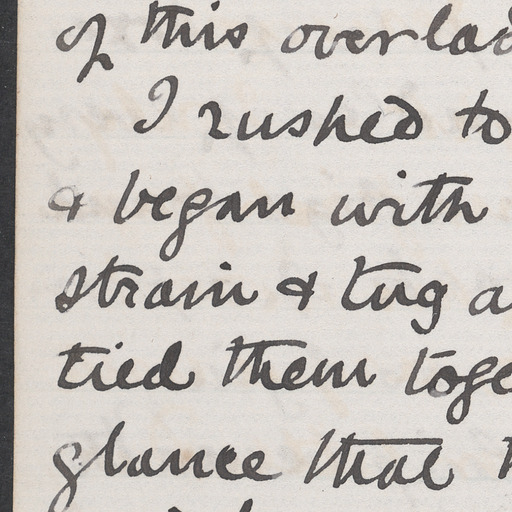 of this overlad
I rushed to
& began with
strain & tug a
tied them toge
glance that